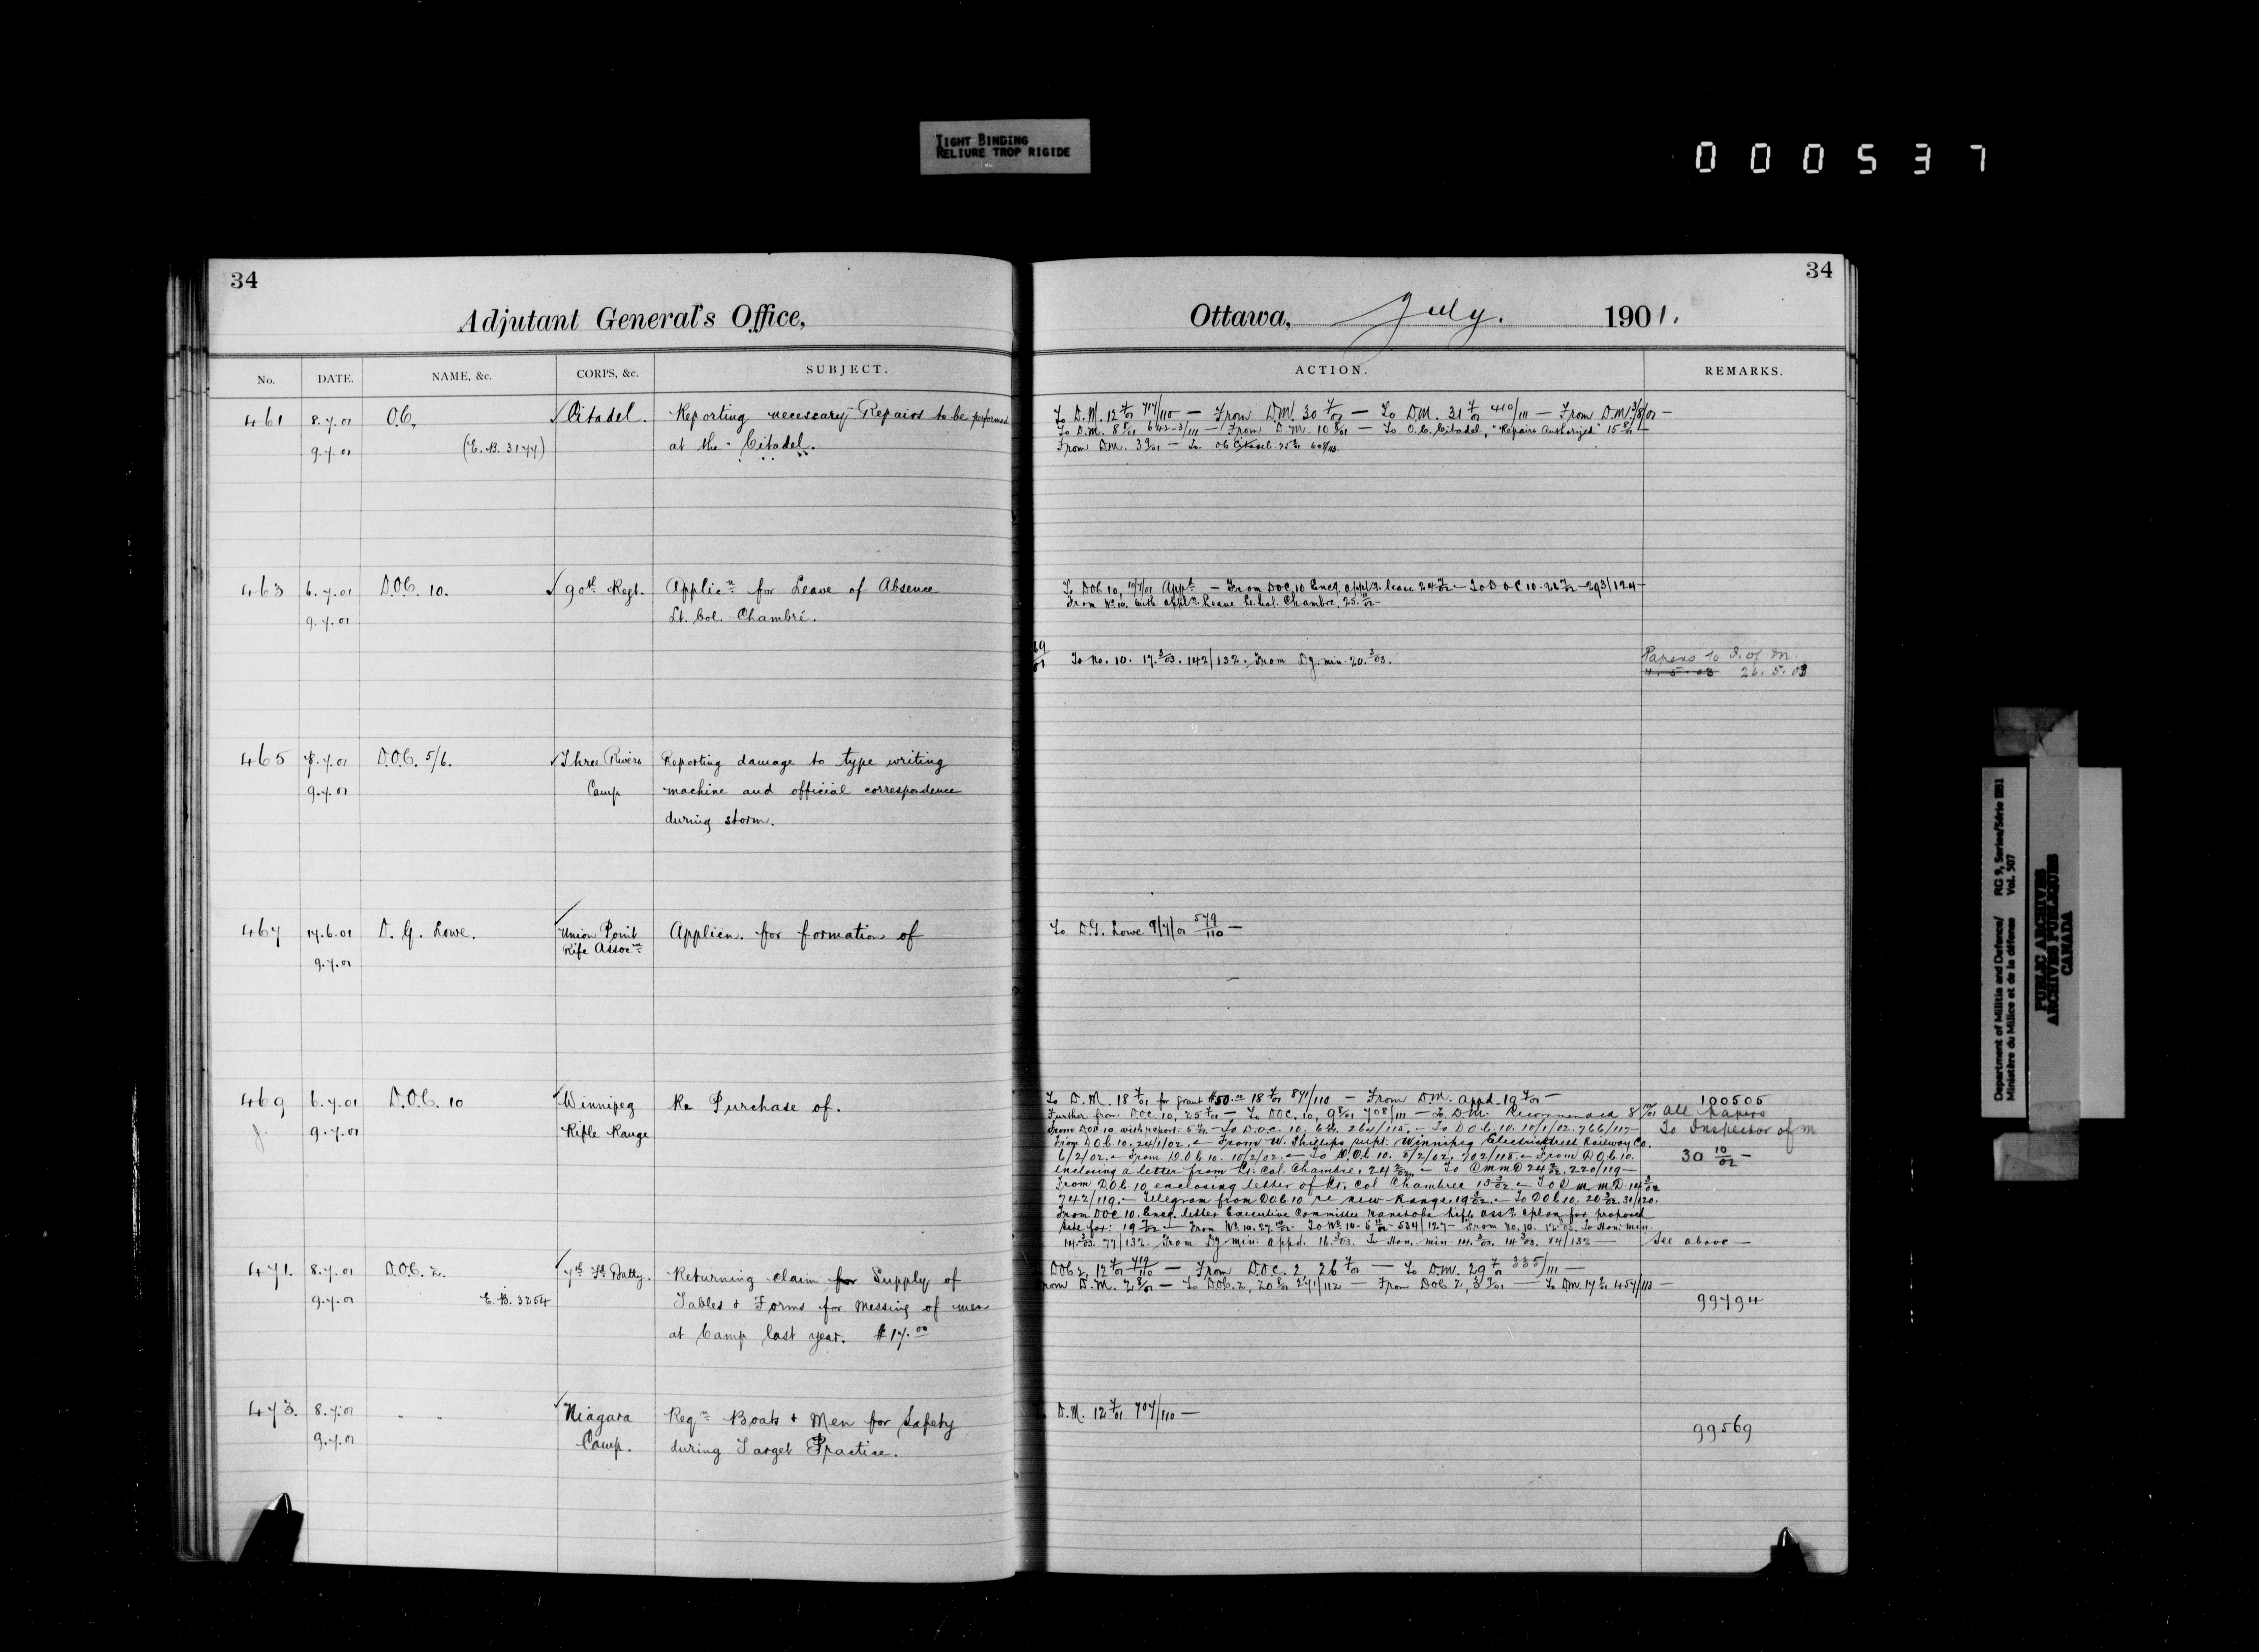 TIGHT BINDING
RELIURE TROP RIGIDE
000537
34
34
Adjutant General's Office,
Ottawa, July. 1901.
No. DATE. NAME, &c. CORPS, &c. SUBJECT.
ACTION. REMARKS.
461 8.7.01 O.C. ✓ Citadel. Reporting necessary Repairs to be performed
9.7.01 (E.B. 3177) at the Citadel.
To D.M. 12 7/01 717/110 — From D.M. 30 7/01 — To D.M. 31 7/01 410/111 — From D.M. 3/8/01 —
To D.M. 8 8/01 — From D.M. 10 8/01 — To O.C. Citadel, "Repairs Authorized" 15 8/01 —
From D.M. 3 9/01 — To O.C. Citadel
463 6.7.01 D.O.C. 10. ✓ 90th Regt. Applicn for Leave of Absence
9.7.01 Lt. Col. Chambré.
To DOC 10, 10/7/01 Appd — From DOC. 10 Encg. appln. leave 24 — To D O C 10. 293/124 —
From No. 10. with appln. Leave Lt. Col. Chambre, 25.
To No. 10. 17. 3/03. 142/132. From Dg. min. 20. 3/03.
Papers to D. of M.
4.5.03 26.5.03
465 8.7.01 D.O.C. 5/6. ✓ Three Rivers Reporting damage to type writing
9.7.01 Camp machine and official correspondence
during storm.
467 17.6.01 D. G. Lowe. ✓ Union Point Applicn. for formation of
9.7.01 Rifle Assocn
To D.G. Lowe 9/7/01 579/110 —
469 6.7.01 D.O.C. 10 ✓ Winnipeg Re Purchase of.
9.7.01 Rifle Range
To D.M. 18 7/01 for grant $50.00 18 7/01 841/110 — From D.M. appd. 19 7/01 —
Further from DOC. 10, 25 7/01 — To DOC. 10, 9 8/01 708/111 — To D.M. Recommended 8
From DOC 10 with report. — To D.O.C. 10, 264/115. — To D.O.C. 10. 10/1/02. 766/117 —
From D.O.C. 10. 24/1/02. — From W. Phillips supt. Winnipeg Electric Street Railway Co.
6/2/02. — From D.O.C. 10. 10/2/02. — To D.O.C. 10. 702/118. — From D.O.C. 10.
enclosing a letter from Lt. Col. Chambre, 24 2/02. — To 24 2/02. 220/119 —
From D.O.C. 10 enclosing letter of Lt. Col Chambree 13 3/02. —
742/119. — Telegram from DOC 10 re new Range. 19 3/02. — To DOC 10. 20 3/02. 31/120.
From DOC 10. Encg. letter Executive Committee Manitoba Rifle Assn. & plan for proposed
site for: — From No. 10. — To No. 10 534/127 — From No. 10. To Hon. min.
14. 3/03. 77/132. From Dg min. appd. 16. 3/03. To Hon. min. 14. 3/03. 84/132 —
100505
All papers
To Inspector of M
30 10/02 —
See above —
471. 8.7.01 D.O.C. 2. ✓ 7th Fd Batty. Returning claim for Supply of
9.7.01 E.B. 3254 Tables & Forms for Messing of men
at Camp last year. $17.00
DOC 2, 12 7/01 719/110 — From D.O.C. 2, 26 7/01 — To D.M. 29 7/01 335/111 —
From D.M. 2 8/01 — To DOC. 2, 20 8/01 271/112 — From DOC 2, 3 9/01 — To DM. 17 9/01 457/113 —
99794
473. 8.7.01 " " ✓ Niagara Reqn Boats & Men for Safety
9.7.01 Camp. during Target Practice.
D.M. 12 7/01 704/110 —
99569
Department of Militia and Defence/ RG 9, Series/Série IIB1
Ministère du Milice et de la défense Vol. 507
PUBLIC ARCHIVES
ARCHIVES PUBLIQUES
CANADA